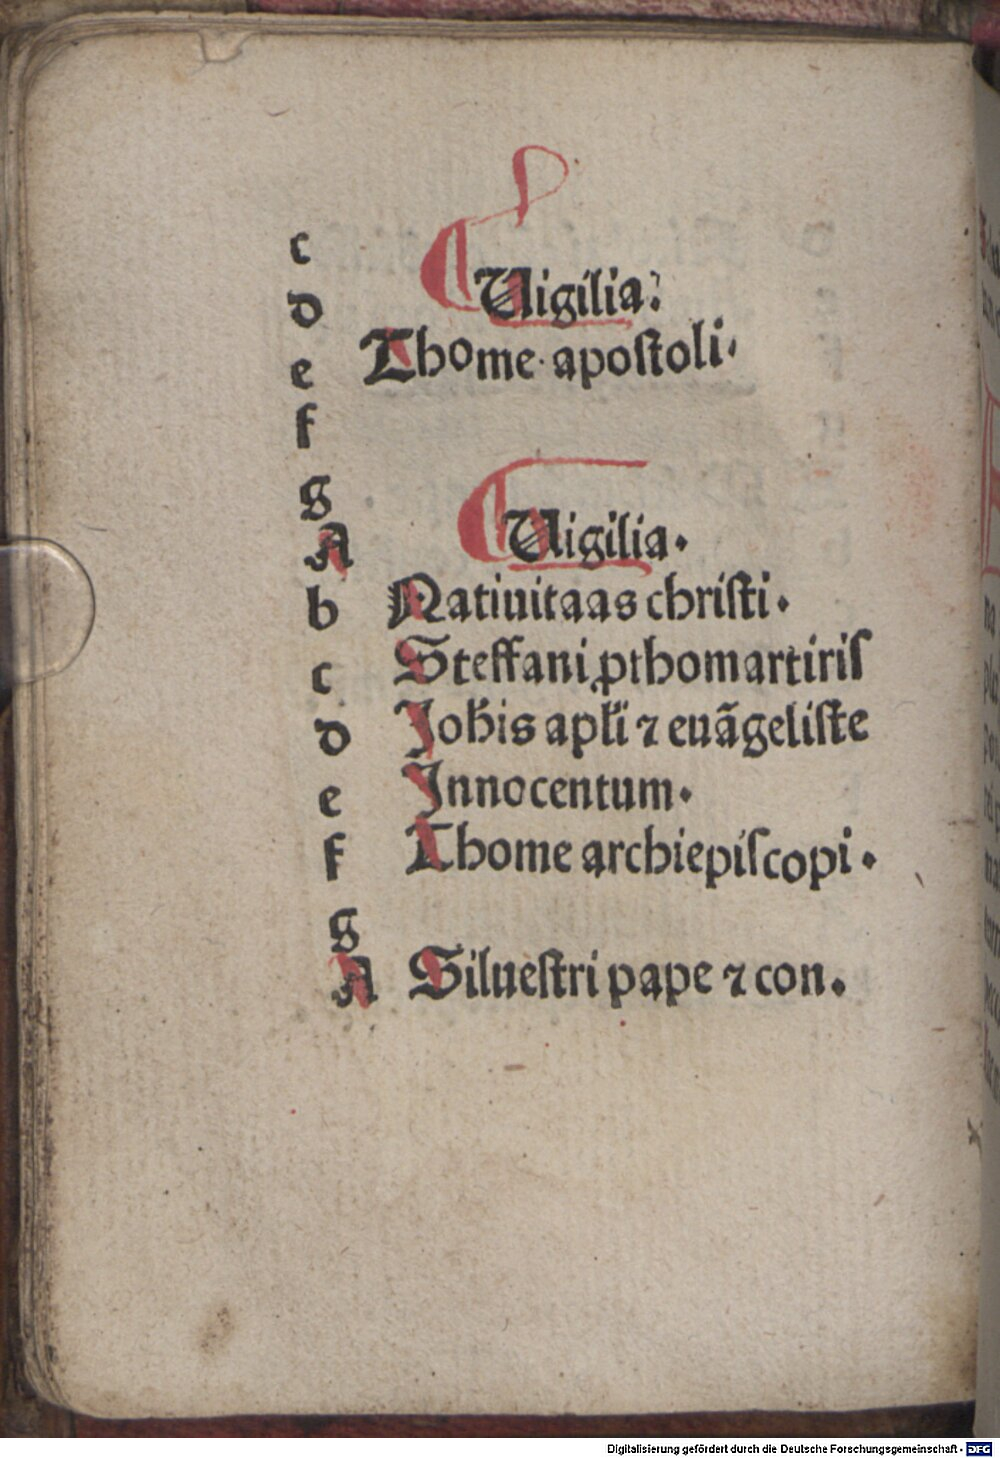 c
d Uigilia:
e Thome · apoſtoli·
f
g
A Uigilia·
b Natiuitaas chriſti·
c Steffani ꝓthomartiriſ
d Joh̄is apl̄i ⁊ euãgeliſte
e Innocentum·
f Thome archiepiſcopi·
g
A Silueſtri pape ⁊ con.
Digitalisierung gefördert durch die Deutsche Forschungsgemeinschaft - DFG